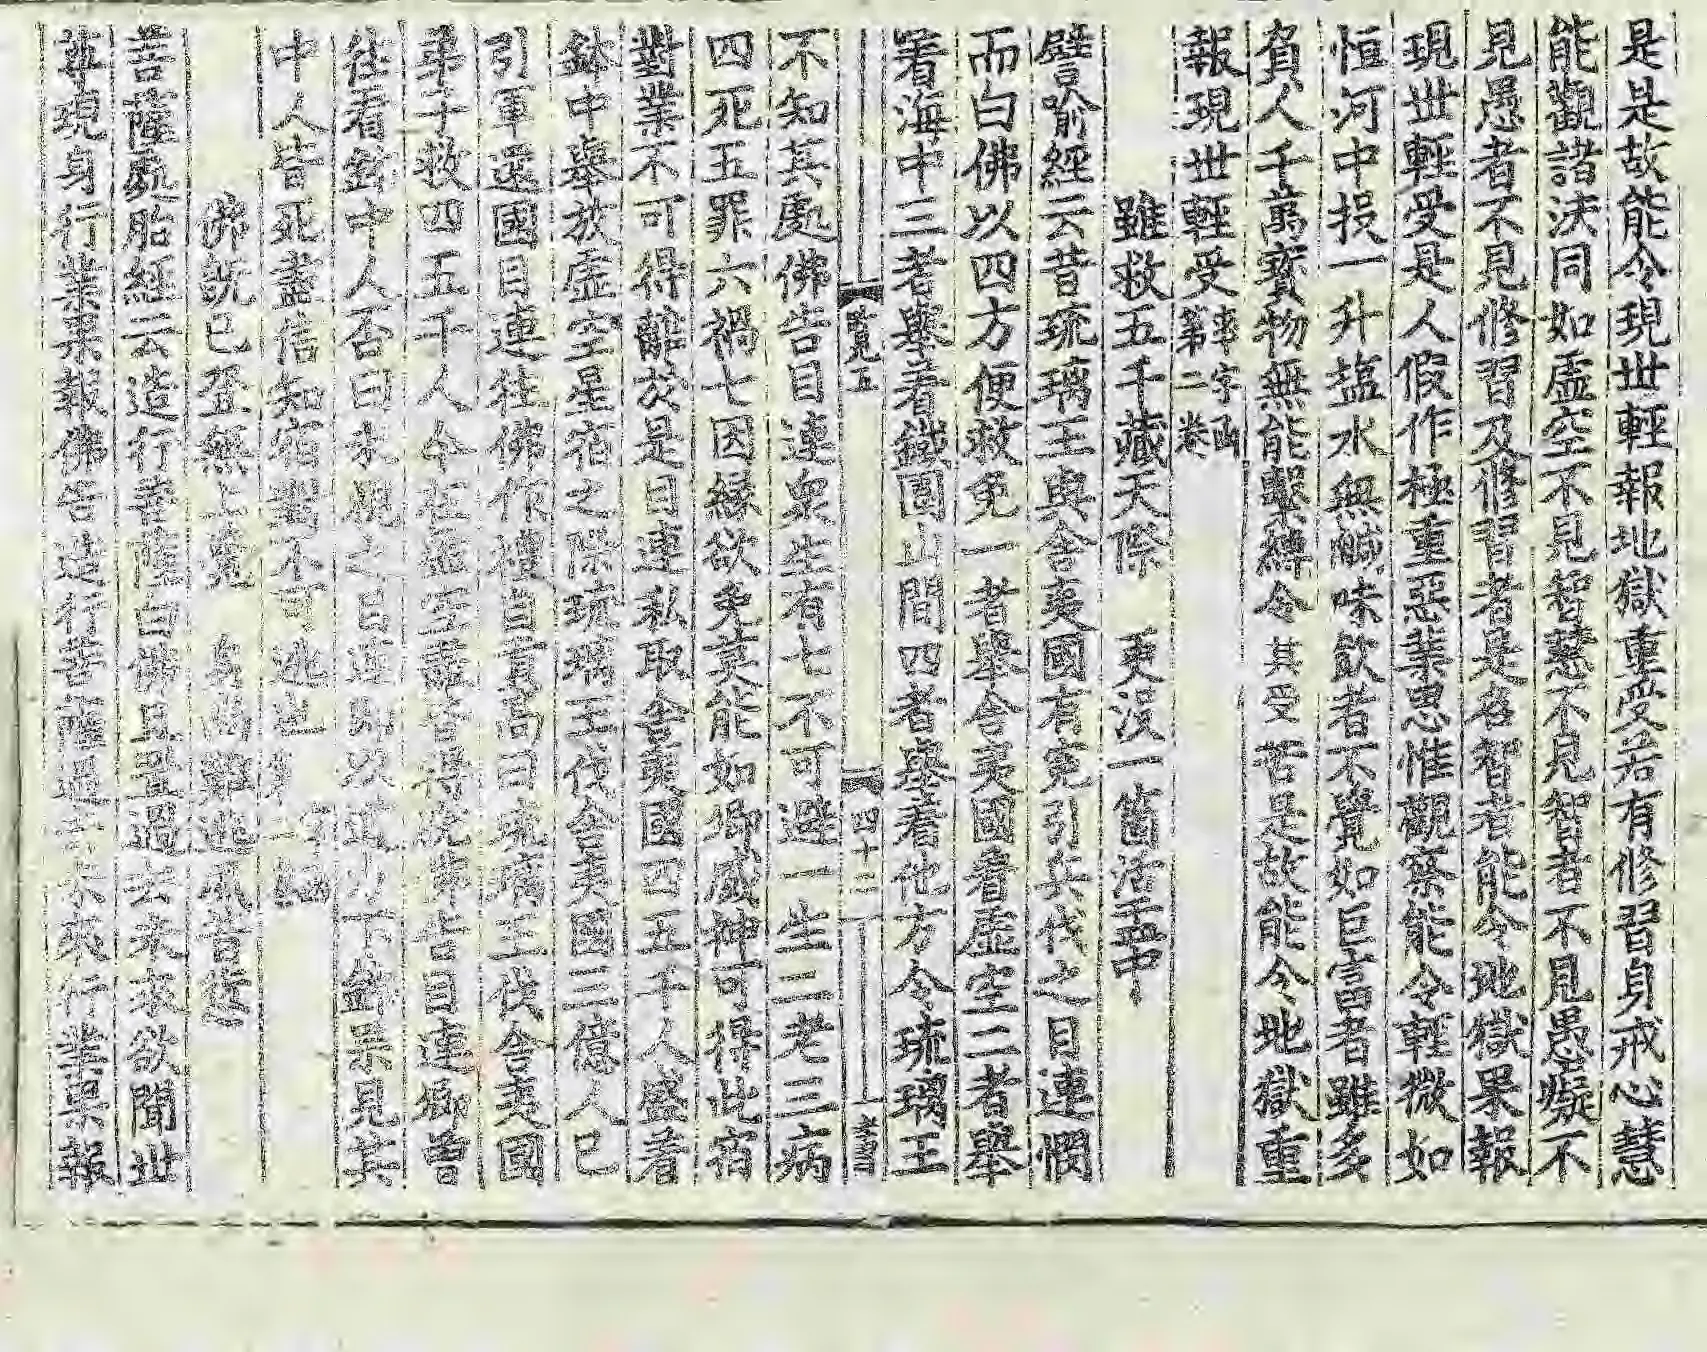 是是故能令現世輕報地獄重受若有修習身戒心慧
能觀諸法同如虛空不見智慧不見智者不見愚癡不
見愚者不見修習及修習者是名智者能令地獄果報
現世輕受是人假作極重惡業思惟觀察能令輕微如
恒河中投一升塩水無鹹味飲者不覺如巨富者雖多
負人千萬寶物無能繫縛令其受苦是故能令地獄重
報現世輕受 字函二卷
雖救五千藏天際 更沒一箇活盂中
譬喻經云昔琉璃王與舍夷國有𡨚引兵伐之目連憫
而白佛以四方便救免一者舉舍夷國着虛空二者舉
着海中三者舉着鐵圍山間四者舉着他方令琉璃王
覽五 四十二
不知其處佛告目連衆生有七不可避一生二老三病
四死五罪六禍七因緣欲免莫能如卿威神可得此宿
對業不可得離於是目連私取舍夷國四五千人盛着
鉢中舉放虛空星宿之際琉璃王伐舍夷國三億人已
引軍還國目連往佛作禮自貢高曰琉璃王伐舍夷國
弟子救四五千人今在虛空盡皆得免佛告目連卿曾
往看鉢中人否曰未視之目連即以道力下鉢果見其
中人皆死盡信知宿對不可逃也
佛既已登無上覺 身尚難逃夙昔
菩薩處胎經云造行菩薩白佛且置過去未來欲聞世
尊現身行業果報佛告造行菩薩過去未來行業果報